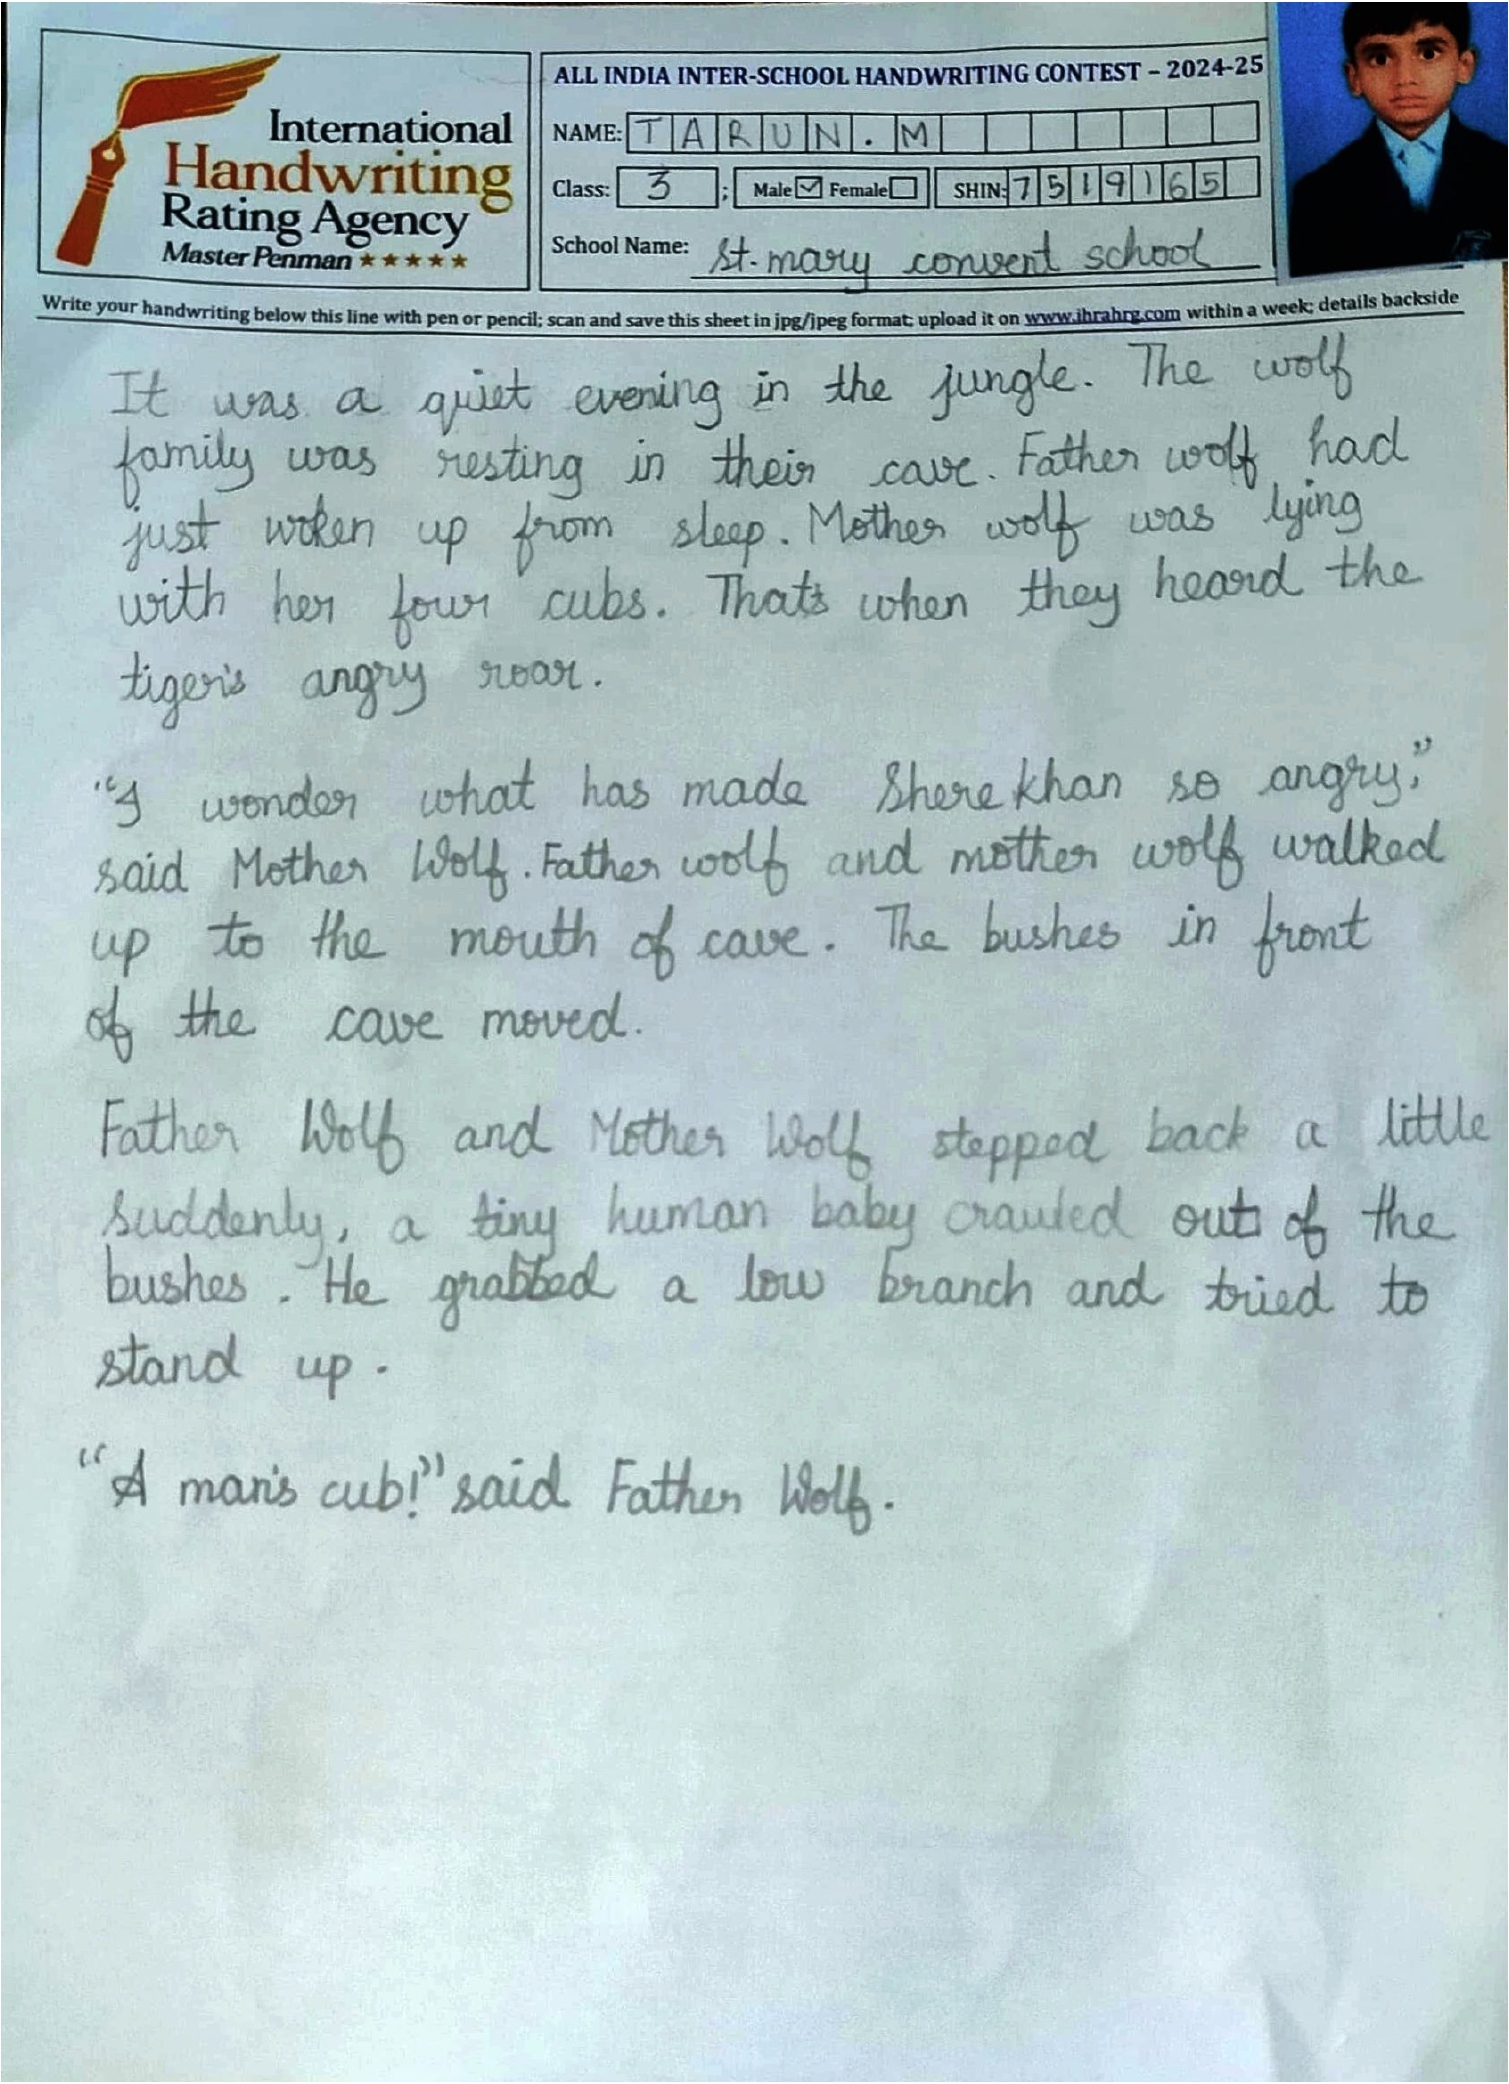 International
Handwriting
Rating Agency
Master Penman ★★★★★
ALL INDIA INTER-SCHOOL HANDWRITING CONTEST – 2024-25
NAME: TARUN.M
Class: 3 ; Male ☑ Female ☐ SHIN: 7519165
School Name: St. mary convent school
Write your handwriting below this line with pen or pencil; scan and save this sheet in jpg/jpeg format; upload it on www.ihrahrg.com within a week; details backside
It was a quiet evening in the jungle. The wolf
family was resting in their cave. Father wolf had
just woken up from sleep. Mother wolf was lying
with her four cubs. That's when they heard the
tiger's angry roar.
"I wonder what has made Shere khan so angry,"
said Mother Wolf. Father wolf and mother wolf walked
up to the mouth of cave. The bushes in front
of the cave moved.
Father Wolf and Mother Wolf stepped back a little
suddenly, a tiny human baby crawled out of the
bushes. He grabbed a low branch and tried to
stand up.
"A man's cub!" said Father Wolf.